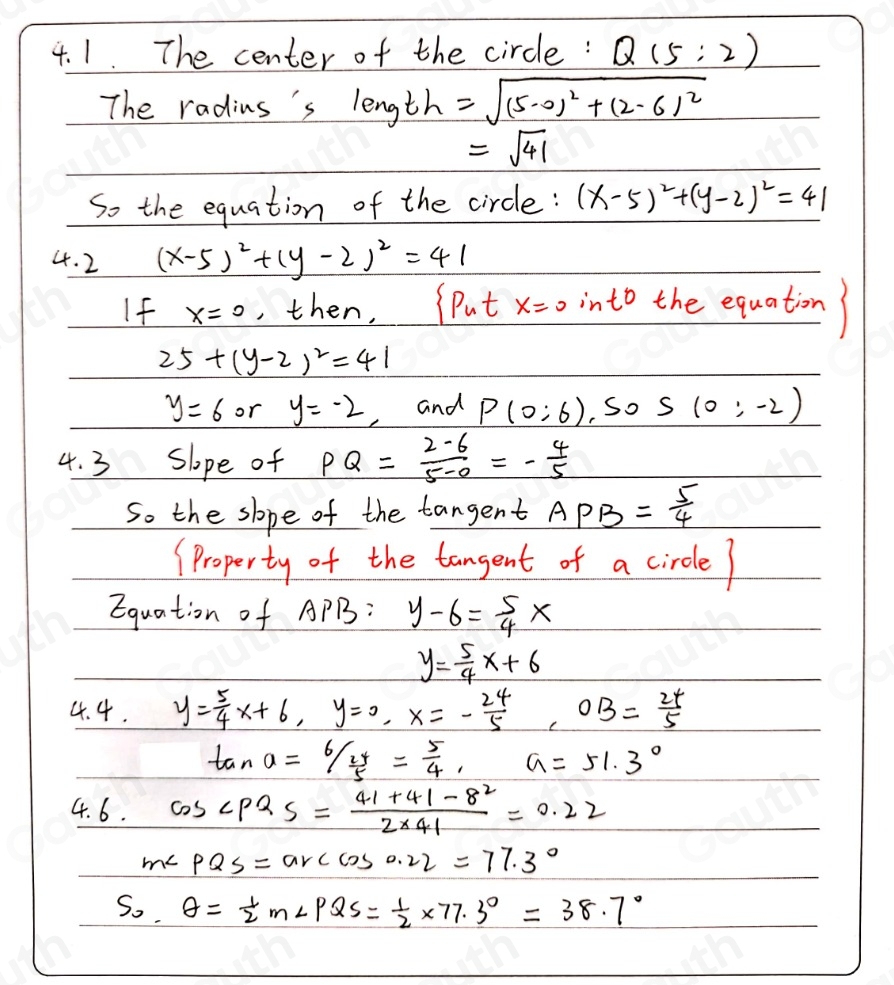 4.1. The center of the circle : Q(5;2)
The radius's length = √((5-0)² + (2-6)²)
= √41
So the equation of the circle: (x-5)²+(y-2)²=41
4.2 (x-5)²+(y-2)²=41
If x=0, then, {Put x=0 into the equation}
25+(y-2)²=41
y=6 or y=-2, and P(0;6), So S(0;-2)
4.3 Slope of PQ = (2-6)/(5-0) = -4/5
So the slope of the tangent APB = 5/4
{Property of the tangent of a circle}
Equation of APB: y-6=5/4 x
y=5/4 x+6
4.4. y=5/4 x+6, y=0, x=-24/5, OB=24/5
tan a = 6/(24/5) = 5/4, a=51.3°
4.6. cos∠PQS = (41+41-8²)/(2×41) = 0.22
m∠PQS = arccos 0.22 = 77.3°
So. θ = 1/2 m∠PQS = 1/2 ×77.3° = 38.7°
Gauth